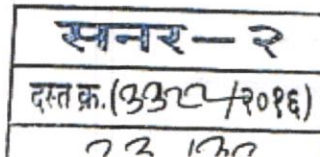 सनर-२
दस्त क्र.(३३२२/२०१६)